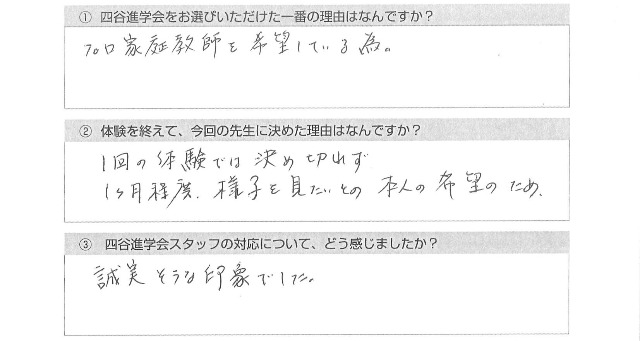 ① 四谷進学会をお選びいただけた一番の理由はなんですか？
プロ家庭教師を希望している為。
② 体験を終えて、今回の先生に決めた理由はなんですか？
1回の体験では決め切れず
1ヶ月程度、様子を見たいとの本人の希望のため、
③ 四谷進学会スタッフの対応について、どう感じましたか？
誠実そうな印象でした。